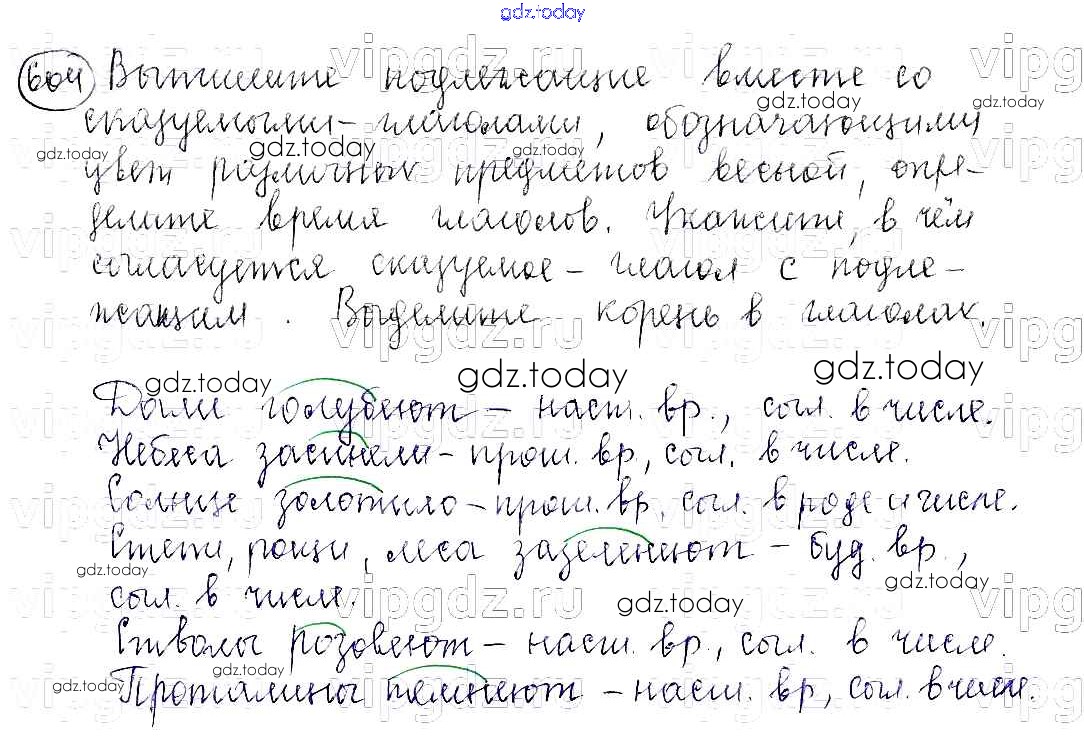 gdz.today
604 Выпишите подлежащие вместе со
сказуемыми-глаголами, обозначающими
цвет различных предметов весной, опре-
делите время глаголов. Укажите, в чём
согласуется сказуемое - глагол с подле-
жащим. Выделите корень в глаголах.
Дали голубеют - наст. вр., согл. в числе.
Небеса засинели - прош. вр, согл. в числе.
Солнце золотило - прош. вр, согл. в роде и числе.
Степи, рощи, леса зазеленеют - буд. вр.,
согл. в числе.
Стволы розовеют - наст. вр., согл. в числе.
Проталины темнеют - наст. вр, согл. в числе.